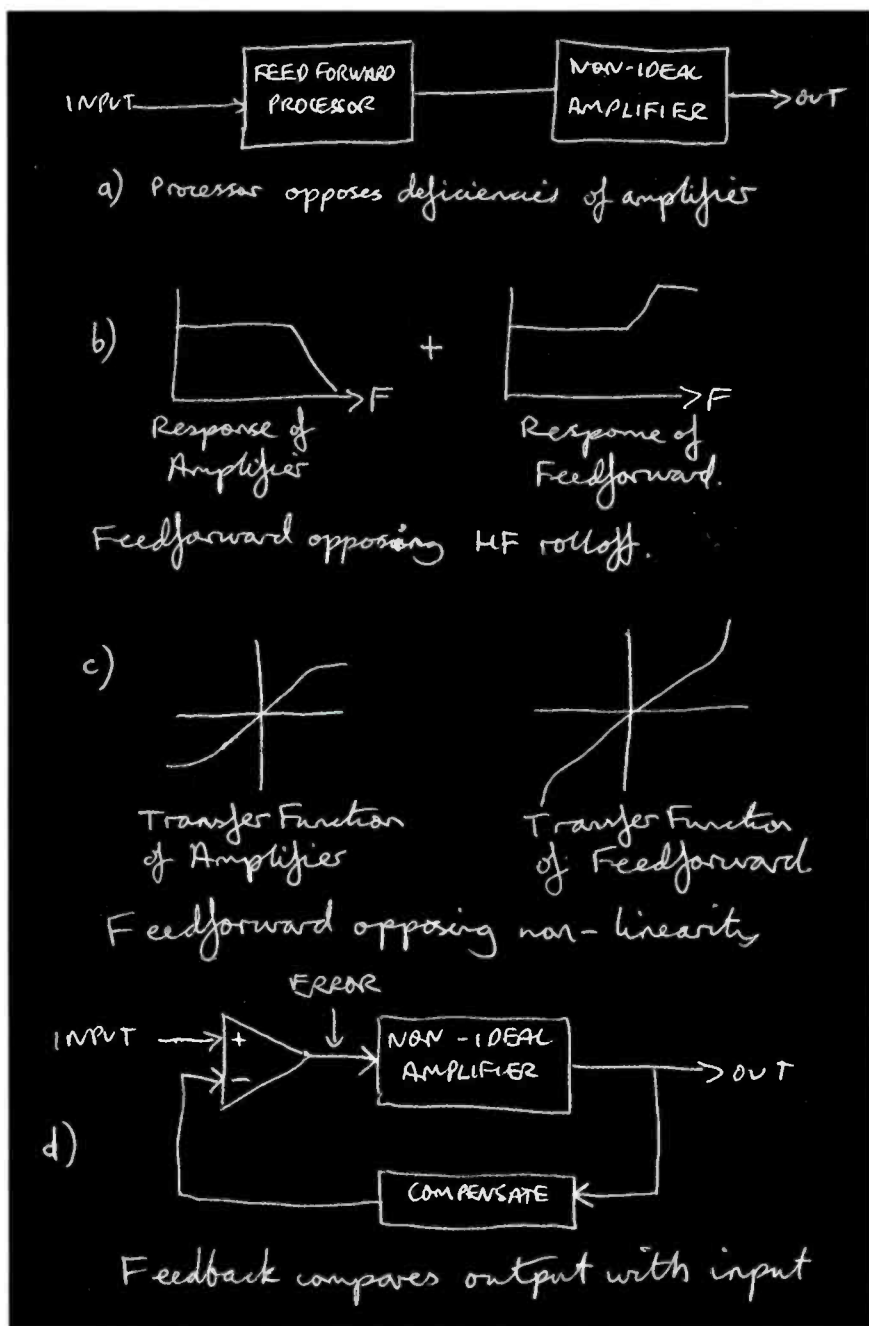 INPUT
FEED FORWARD
PROCESSOR
NON-IDEAL
AMPLIFIER
OUT
a) Processor opposes deficiencis of amplifier
b)
+
F
F
Response of
Amplifier
Response of
Feedforward.
Feedforward opposing HF rolloff.
c)
Transfer Function
of Amplifier
Transfer Function
of Feedforward
Feedforward opposing non-linearity
ERROR
INPUT
+
-
NON-IDEAL
AMPLIFIER
OUT
d)
COMPENSATE
Feedback compares output with input